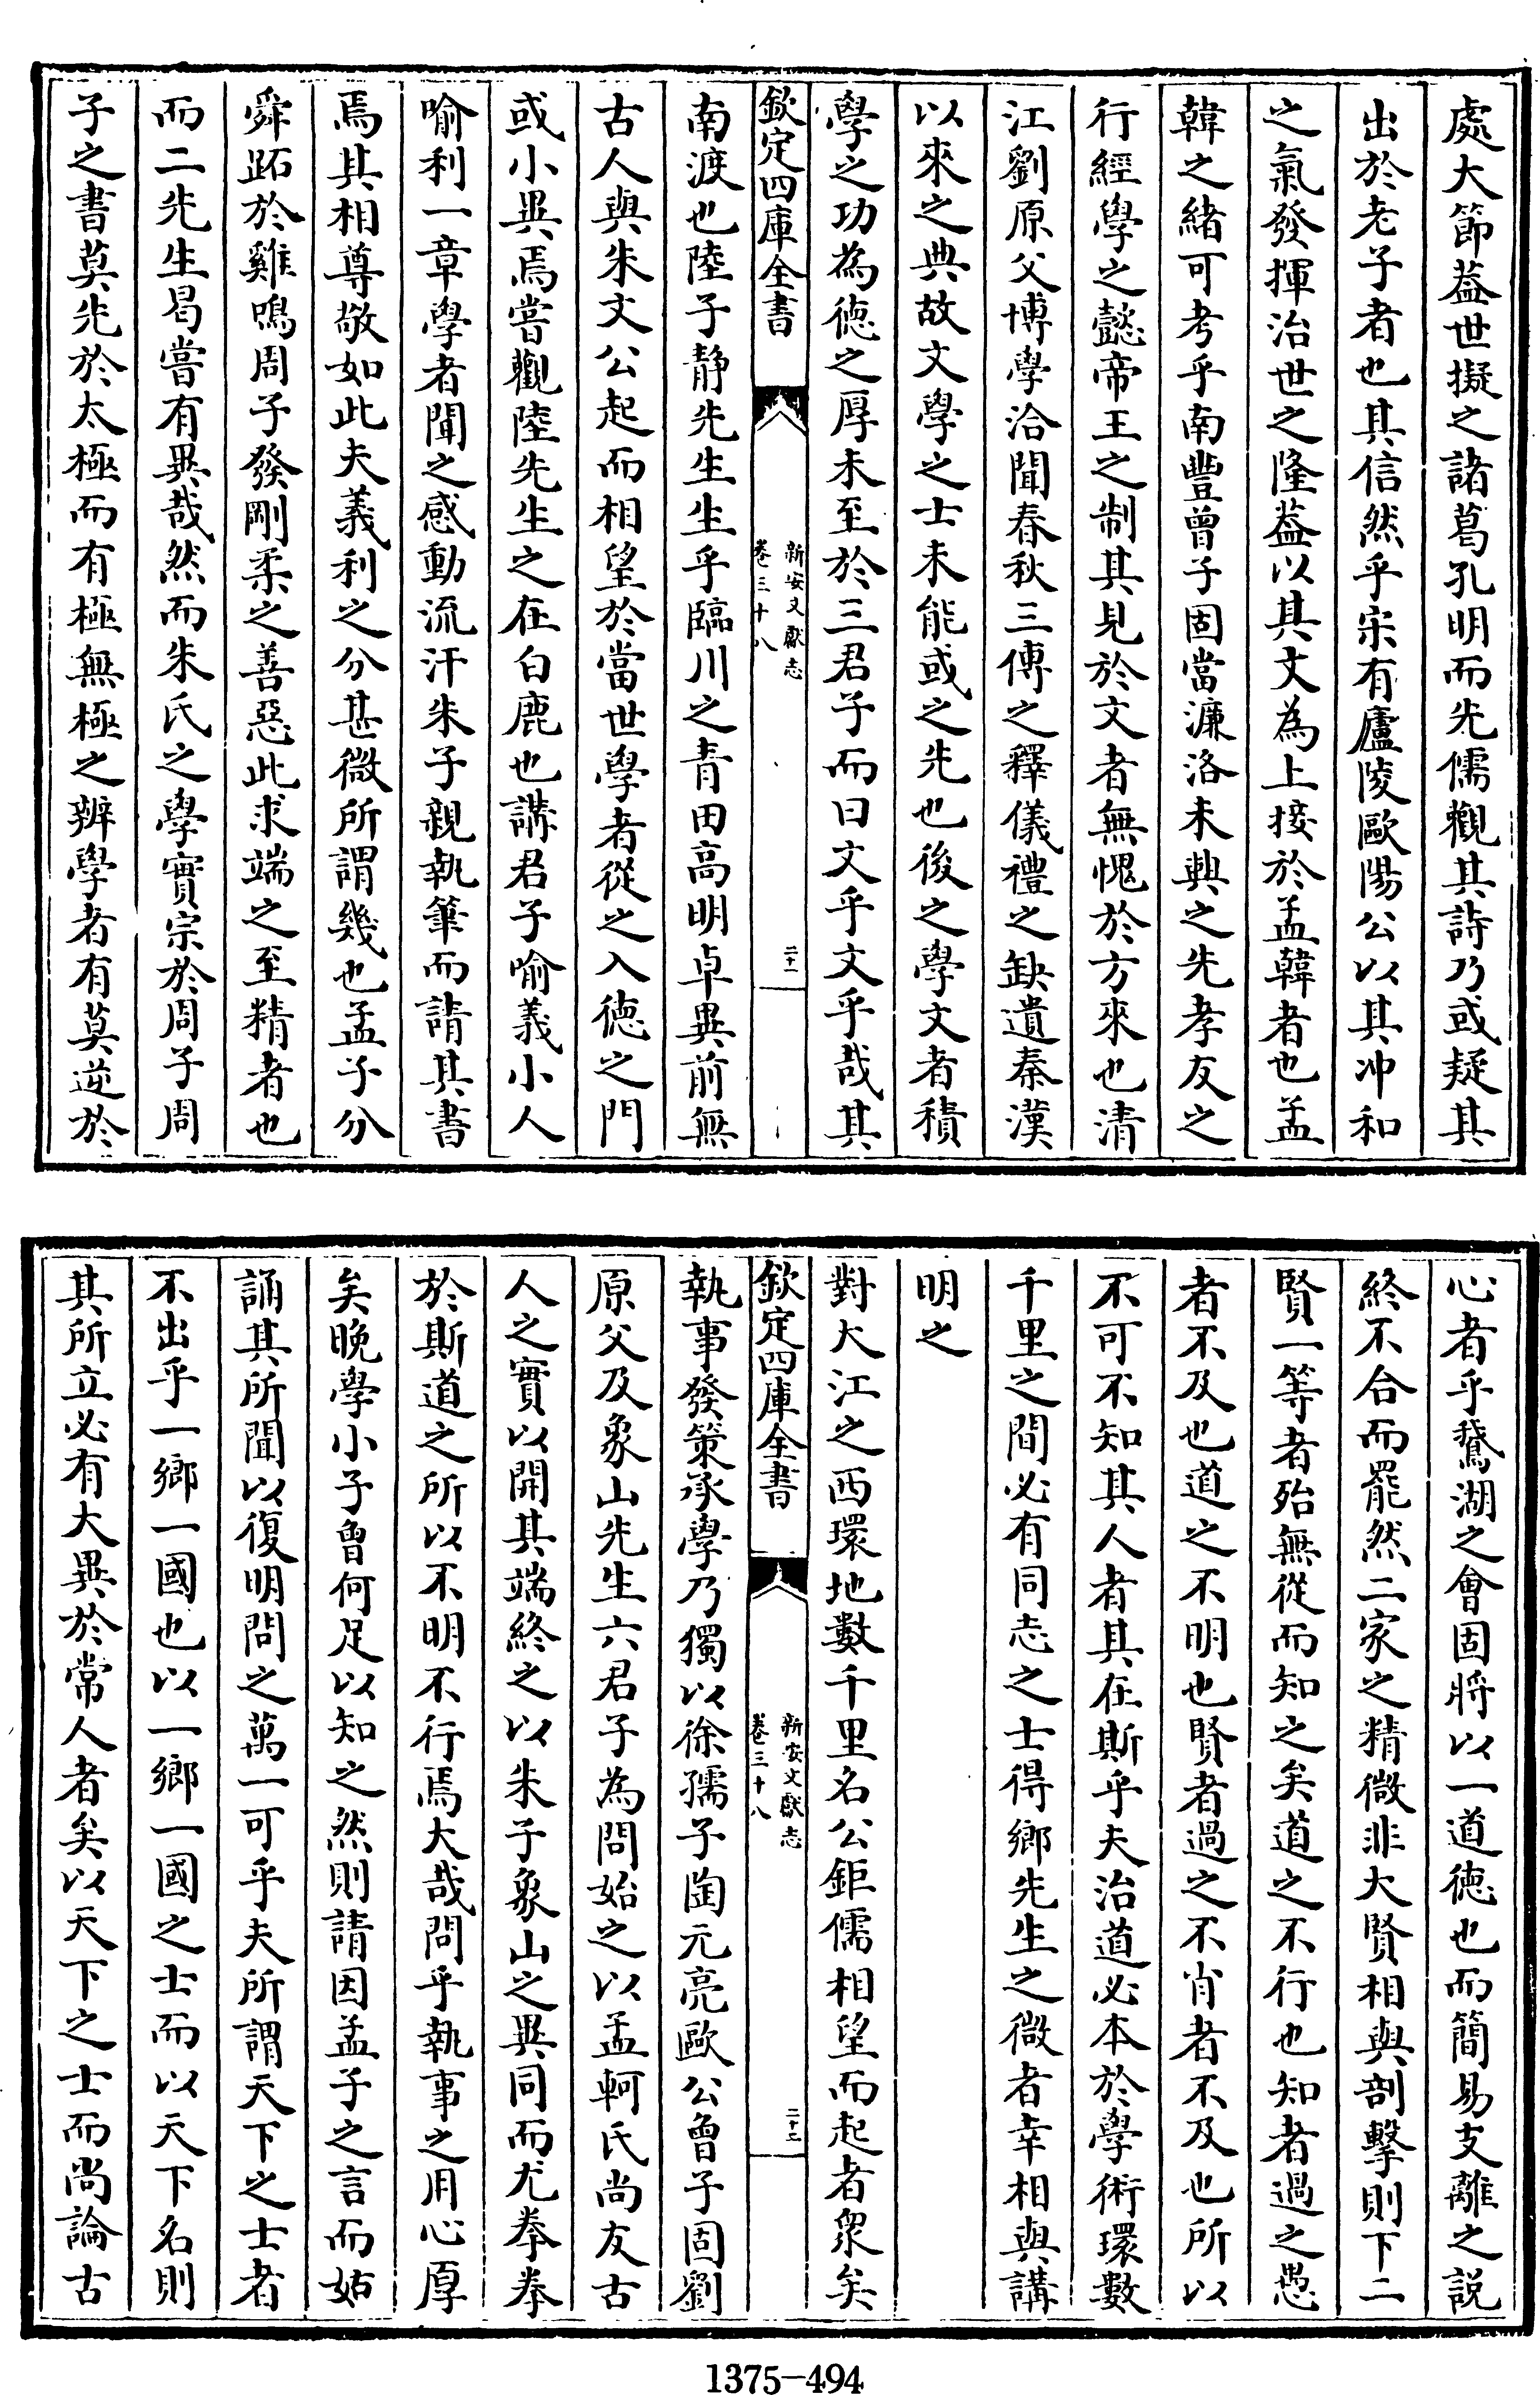 處大節葢世擬之諸葛孔明而先儒觀其詩乃或疑其
出於老子者也其信然乎宋有廬陵歐陽公以其冲和
之氣發揮治世之隆葢以其文為上接於孟韓者也孟
韓之緒可考乎南豐曾子固當濂洛未興之先孝友之
行經學之懿帝王之制其見於文者無愧於方來也清
江劉原父博學洽聞春秋三傳之釋儀禮之缺遺秦漢
以來之典故文學之士未能或之先也後之學文者積
學之功為徳之厚未至於三君子而曰文乎文乎哉其
欽定四庫全書
新安文獻志
卷三十八
二十一
南渡也陸子靜先生生乎臨川之青田高明卓異前無
古人與朱文公起而相望於當世學者從之入徳之門
或小異焉嘗觀陸先生之在白鹿也講君子喻義小人
喻利一章學者聞之感動流汗朱子親執筆而請其書
焉其相尊敬如此夫義利之分甚微所謂幾也孟子分
舜跖於雞鳴周子發剛柔之善惡此求端之至精者也
而二先生曷嘗有異哉然而朱氏之學實宗於周子周
子之書莫先於太極而有極無極之辨學者有莫逆於
心者乎鵞湖之會固將以一道徳也而簡易支離之說
終不合而罷然二家之精微非大賢相與剖擊則下二
賢一等者殆無從而知之矣道之不行也知者過之愚
者不及也道之不明也賢者過之不肖者不及也所以
不可不知其人者其在斯乎夫治道必本於學術環數
千里之間必有同志之士得鄉先生之微者幸相與講
明之
對大江之西環地數千里名公鉅儒相望而起者衆矣
欽定四庫全書
新安文獻志
卷三十八
二十二
執事發策承學乃獨以徐孺子陶元亮歐公曾子固劉
原父及象山先生六君子為問始之以孟軻氏尚友古
人之實以開其端終之以朱子象山之異同而尤拳拳
於斯道之所以不明不行焉大哉問乎執事之用心厚
矣晚學小子曾何足以知之然則請因孟子之言而姑
誦其所聞以復明問之萬一可乎夫所謂天下之士者
不出乎一鄉一國也以一鄉一國之士而以天下名則
其所立必有大異於常人者矣以天下之士而尚論古
1375-494